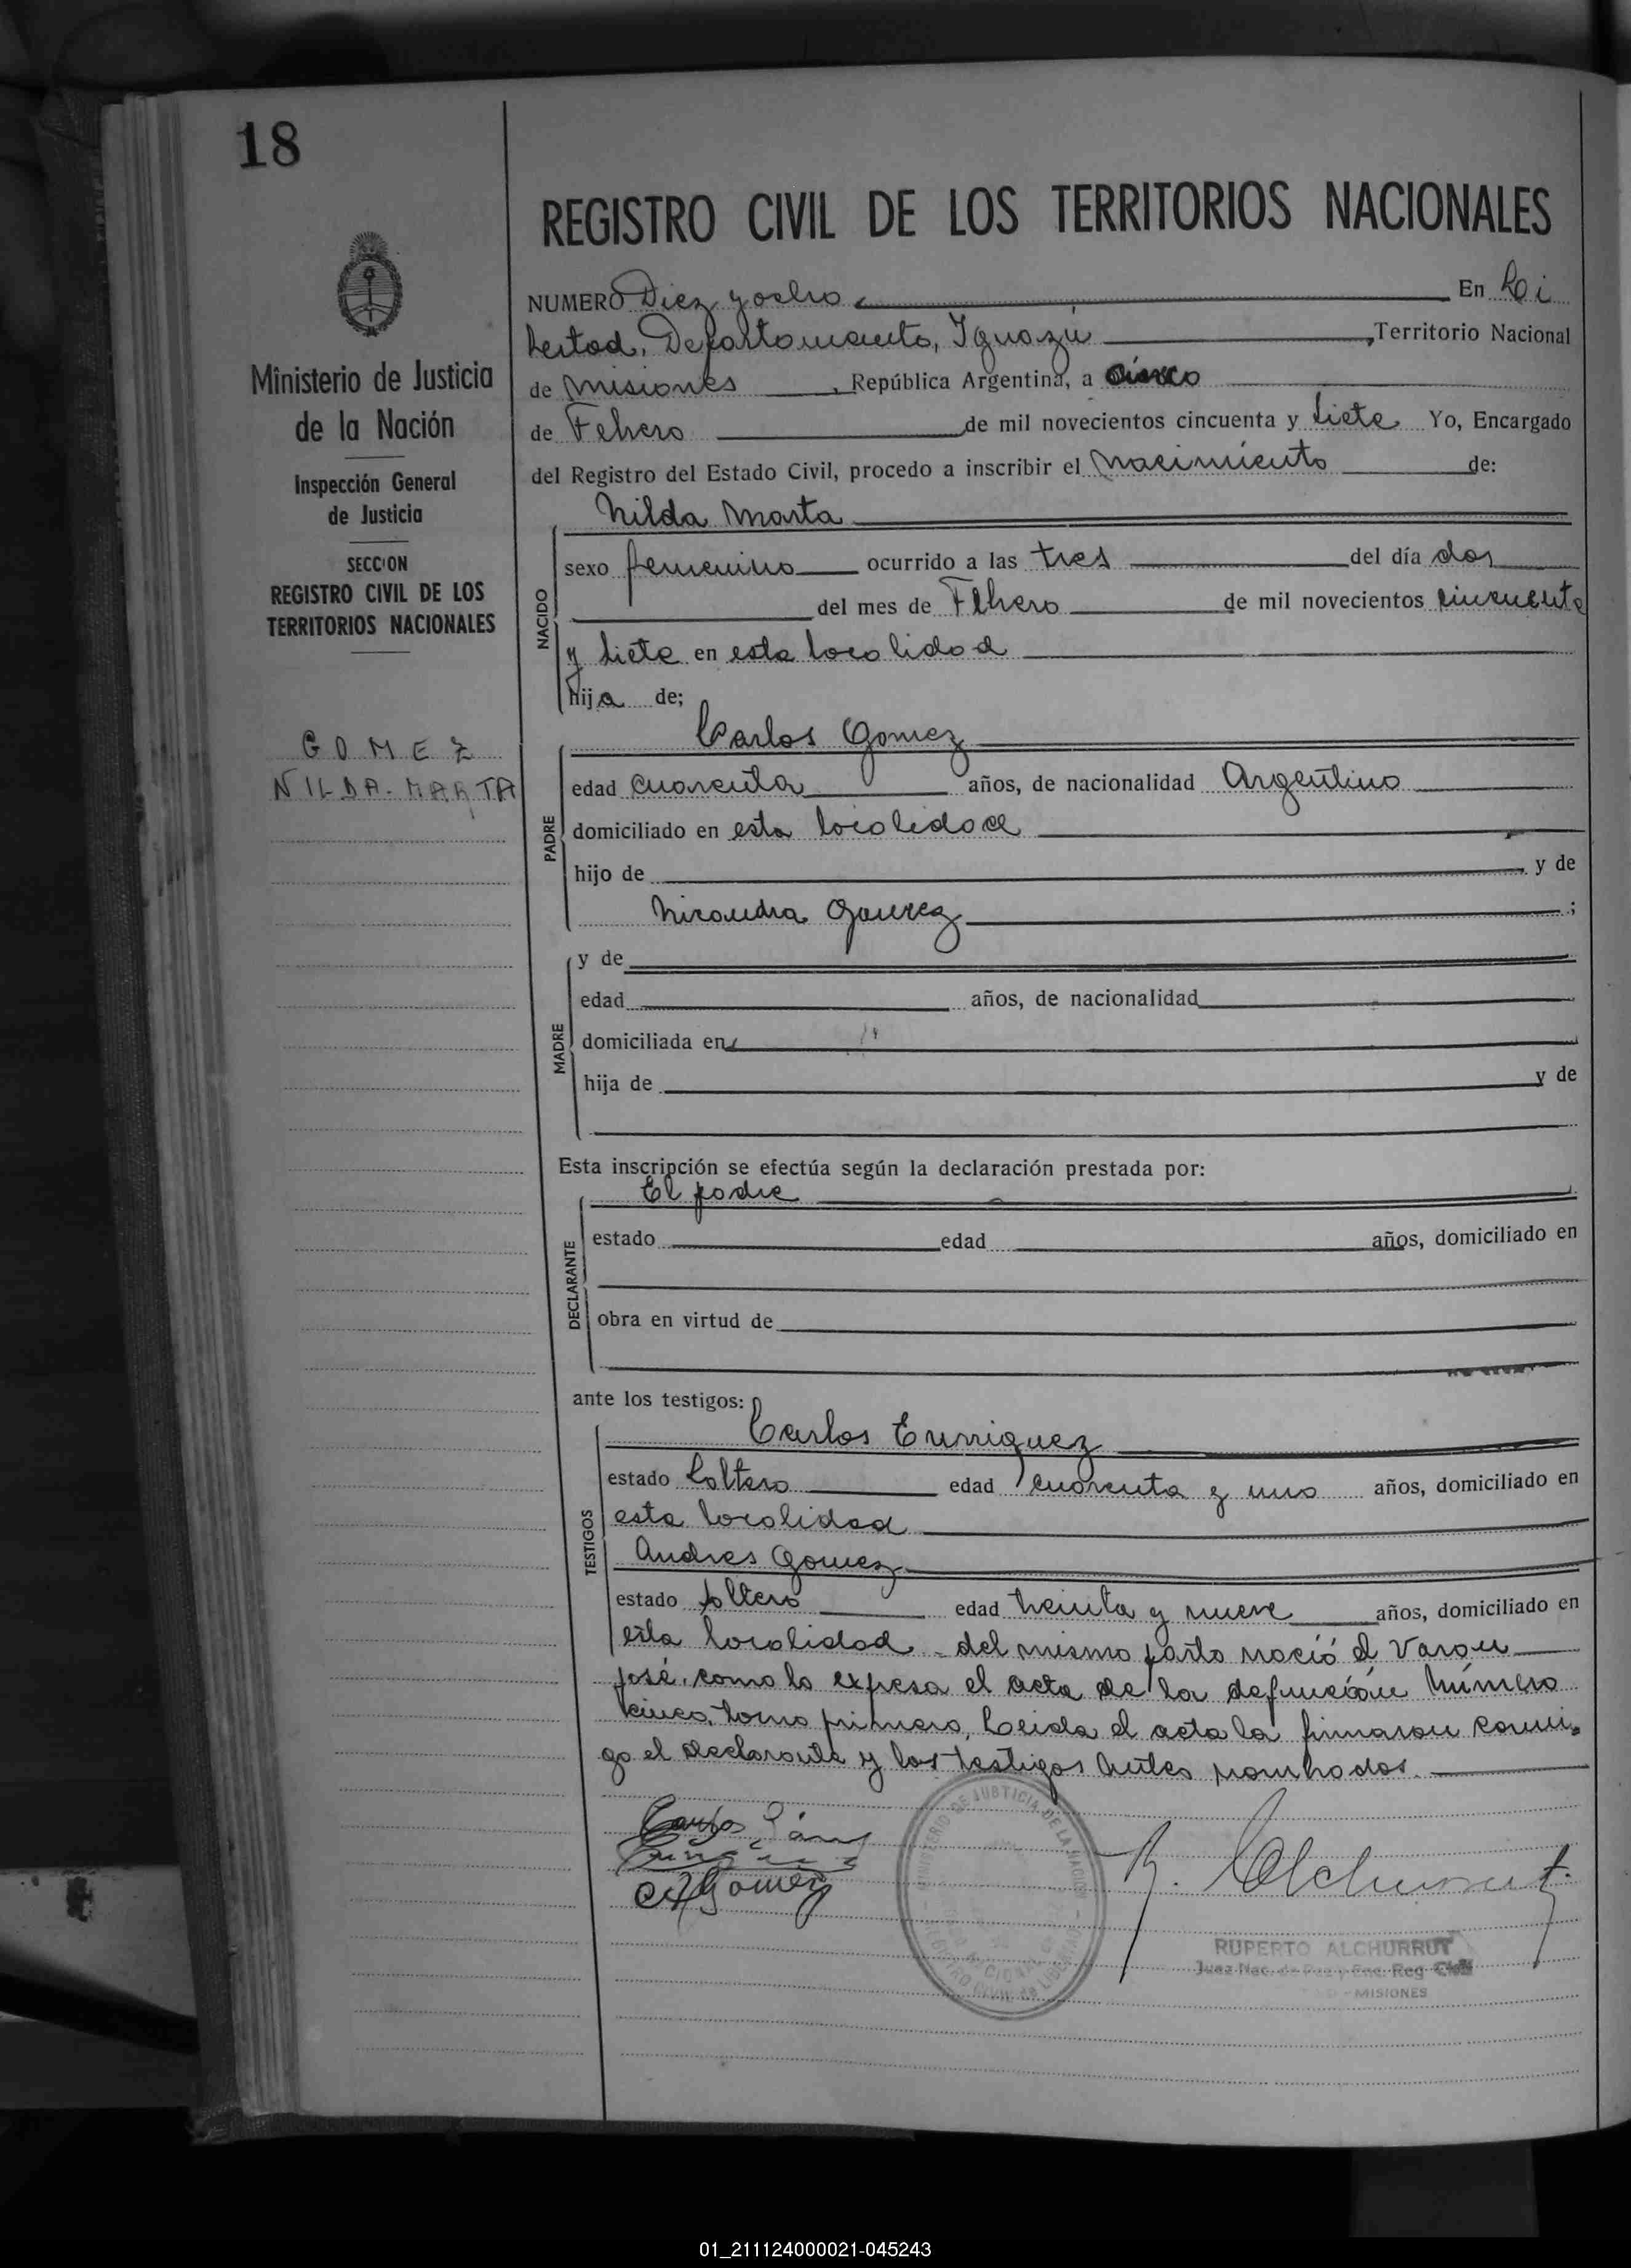 18
REGISTRO CIVIL DE LOS TERRITORIOS NACIONALES
Ministerio de Justicia
de la Nación
Inspección General
de Justicia
SECCION
REGISTRO CIVIL DE LOS
TERRITORIOS NACIONALES
GOMEZ
NILDA MARTA
NUMERO Diez y ocho En Li
bertad, Departamento, Iguazú, Territorio Nacional
de Misiones, República Argentina, a cinco
de Febrero de mil novecientos cincuenta y siete Yo, Encargado
del Registro del Estado Civil, procedo a inscribir el nacimiento de:
NACIDO
Nilda Marta
sexo femenino ocurrido a las tres del día dos
del mes de Febrero de mil novecientos cincuenta
y siete en esta localidad
hija de;
PADRE
Carlos Gomez
edad cuarenta años, de nacionalidad Argentino
domiciliado en esta localidad
hijo de y de
Nicandra Gomez ;
MADRE
y de
edad años, de nacionalidad
domiciliada en
hija de y de
Esta inscripción se efectúa según la declaración prestada por:
DECLARANTE
El padre
estado edad años, domiciliado en
obra en virtud de
ante los testigos:
TESTIGOS
Carlos Enrriquez
estado soltero edad cuarenta y uno años, domiciliado en
esta localidad
Andres Gomez
estado soltero edad treinta y nueve años, domiciliado en
esta localidad - del mismo parto nació el Varon
José, como lo expresa el acta de la defunción número
cinco, tomo primero, Leida el acta la firmaron conmi-
go el declarante y los testigos antes nombrados.
Carlos
Gomez
R. Alchurrut
MINISTERIO DE JUSTICIA DE LA NACION
REGISTRO CIVIL DE LIBERTAD
RUPERTO ALCHURRUT
Juez Nac. de Paz y Enc. Reg. Civil
MISIONES
01_211124000021-045243